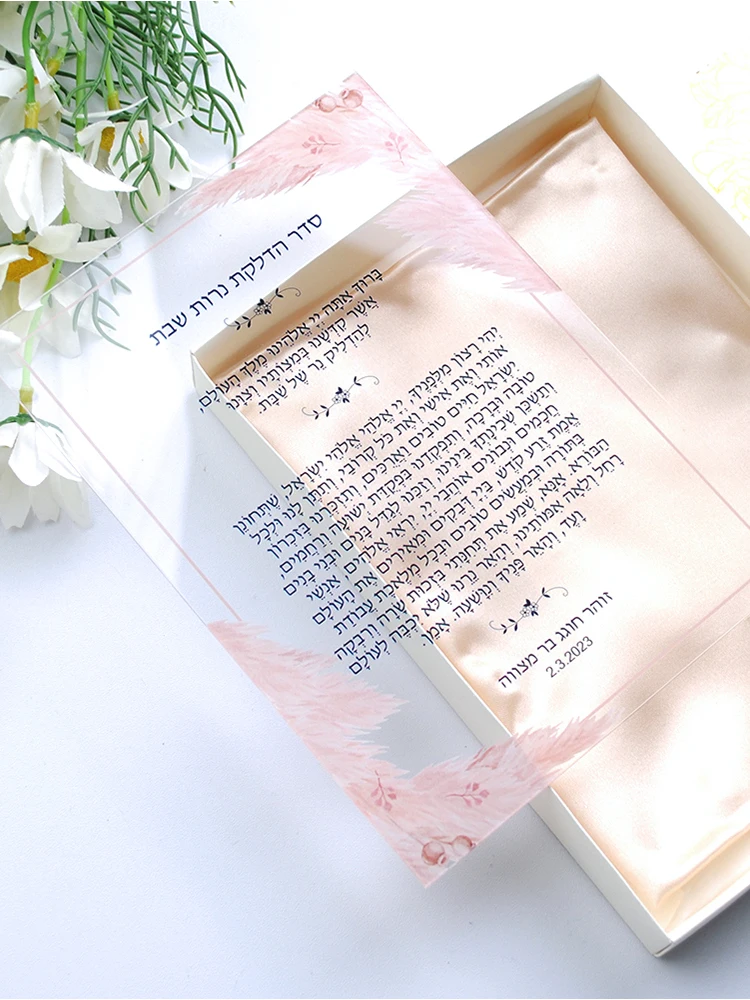 סדר הדלקת נרות שבת
בָּרוּךְ אַתָּה יְיָ אֱלֹהֵינוּ מֶלֶךְ הָעוֹלָם,
אֲשֶׁר קִדְּשָׁנוּ בְּמִצְוֹתָיו וְצִוָּנוּ
לְהַדְלִיק נֵר שֶׁל שַׁבָּת.
יְהִי רָצוֹן מִלְּפָנֶיךָ, יְיָ אֱלֹהַי אֱלֹהֵי יִשְׂרָאֵל, שֶׁתְּחוֹנֵן
אוֹתִי וְאֶת אִישִׁי וְאֶת כָּל קְרוֹבַי, וְתִתֵּן לָנוּ וּלְכָל
יִשְׂרָאֵל חַיִּים טוֹבִים וַאֲרֻכִּים, וְתִזְכְּרֵנוּ בְּזִכְרוֹן
טוֹבָה וּבְרָכָה, וְתִפְקְדֵנוּ בִּפְקֻדַּת יְשׁוּעָה וְרַחֲמִים,
וְתַשְׁכֵּן שְׁכִינָתְךָ בֵּינֵינוּ, וְזַכֵּנוּ לְגַדֵּל בָּנִים וּבְנֵי בָנִים
חֲכָמִים וּנְבוֹנִים אוֹהֲבֵי יְיָ, יִרְאֵי אֱלֹהִים, אַנְשֵׁי
אֱמֶת זֶרַע קֹדֶשׁ, בַּיְיָ דְּבֵקִים וּמְאִירִים אֶת הָעוֹלָם
בְּתוֹרָה וּבְמַעֲשִׂים טוֹבִים וּבְכָל מְלֶאכֶת עֲבוֹדַת
הַבּוֹרֵא. אָנָּא, שְׁמַע אֶת תְּחִנָּתִי בִּזְכוּת שָׂרָה וְרִבְקָה
רָחֵל וְלֵאָה אִמּוֹתֵינוּ, וְהָאֵר נֵרֵנוּ שֶׁלֹּא יִכְבֶּה לְעוֹלָם
וָעֶד, וְהָאֵר פָּנֶיךָ וְנִוָּשֵׁעָה. אָמֵן.
זוהר חוגג בר מצווה
2.3.2023